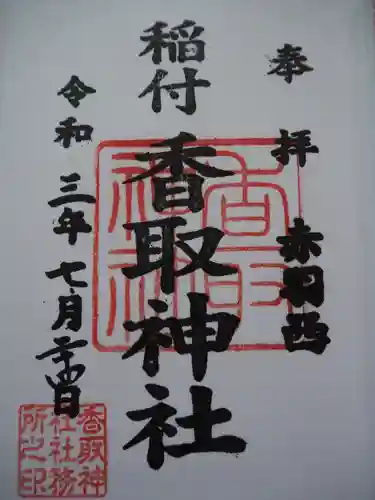 奉拝
赤羽西
稲付
香取神社
令和三年七月二十四日
香取神社
香取神
社社務
所之印